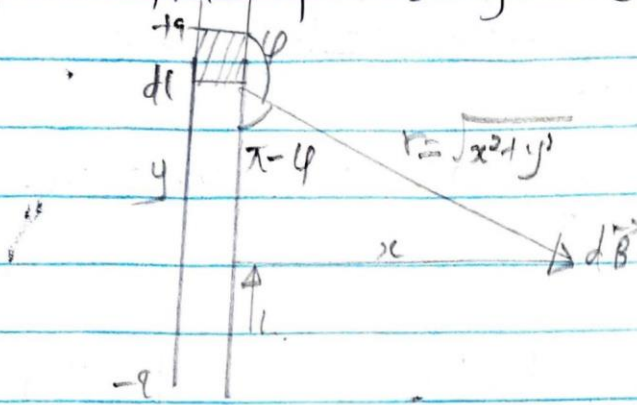 +a
φ
dl
π-φ
r = √x²+y²
y
x
dB⃗
-a